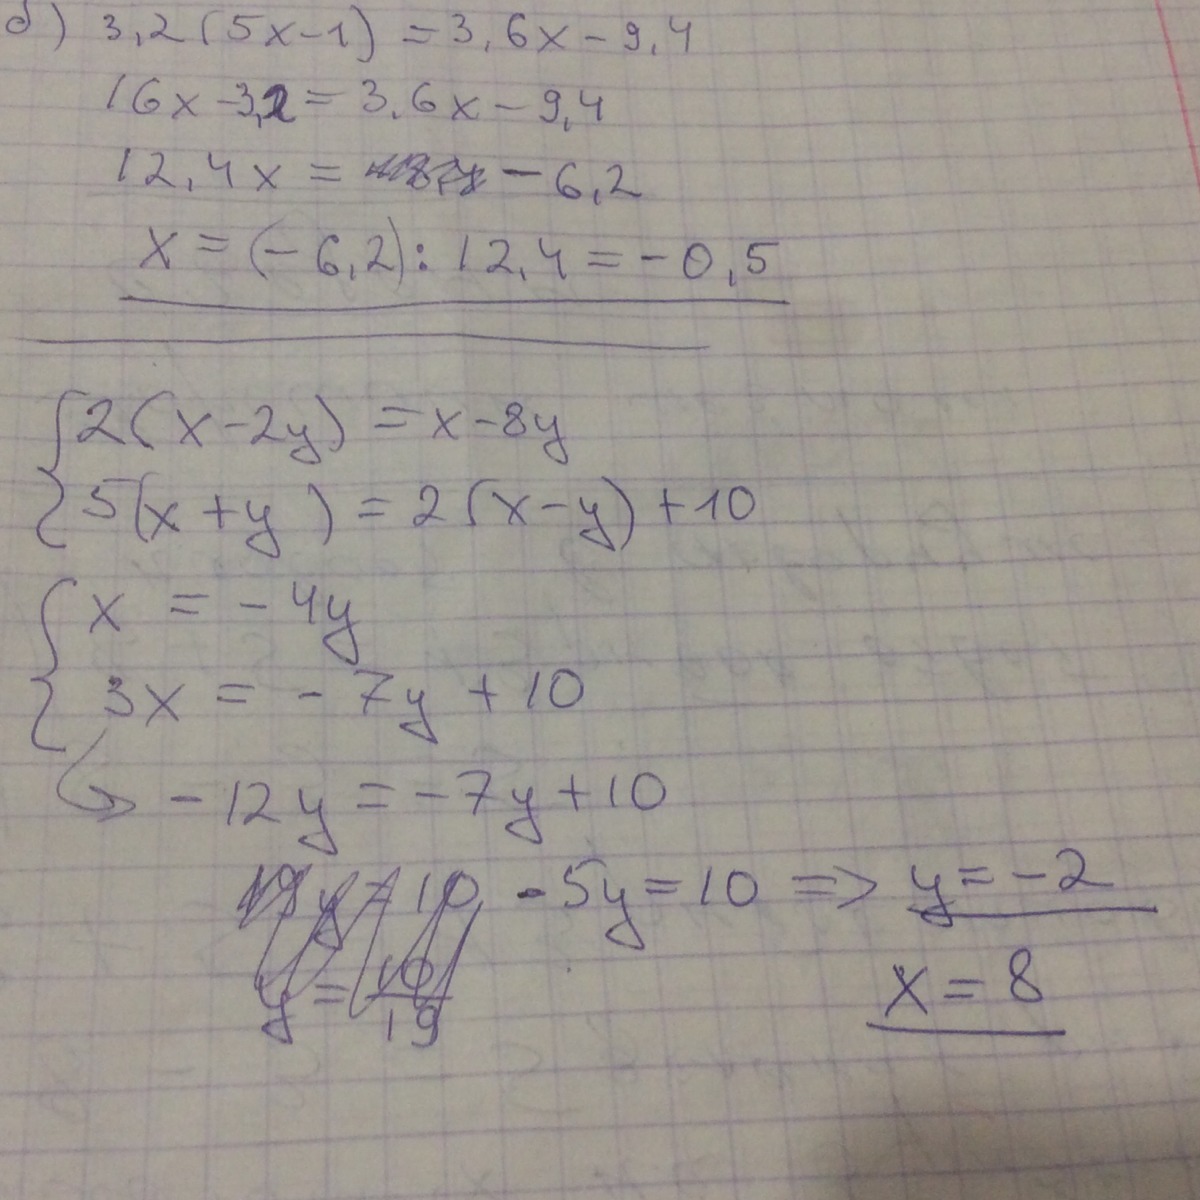 б) 3,2(5x-1) = 3,6x - 9,4
16x - 3,2 = 3,6x - 9,4
12,4x = - 6,2
x = (-6,2) : 12,4 = -0,5
2(x-2y) = x-8y
5(x+y) = 2(x-y) + 10
x = -4y
3x = -7y + 10
-12y = -7y + 10
19y = 10 -5y = 10 => y = -2
y = 10/19 x = 8